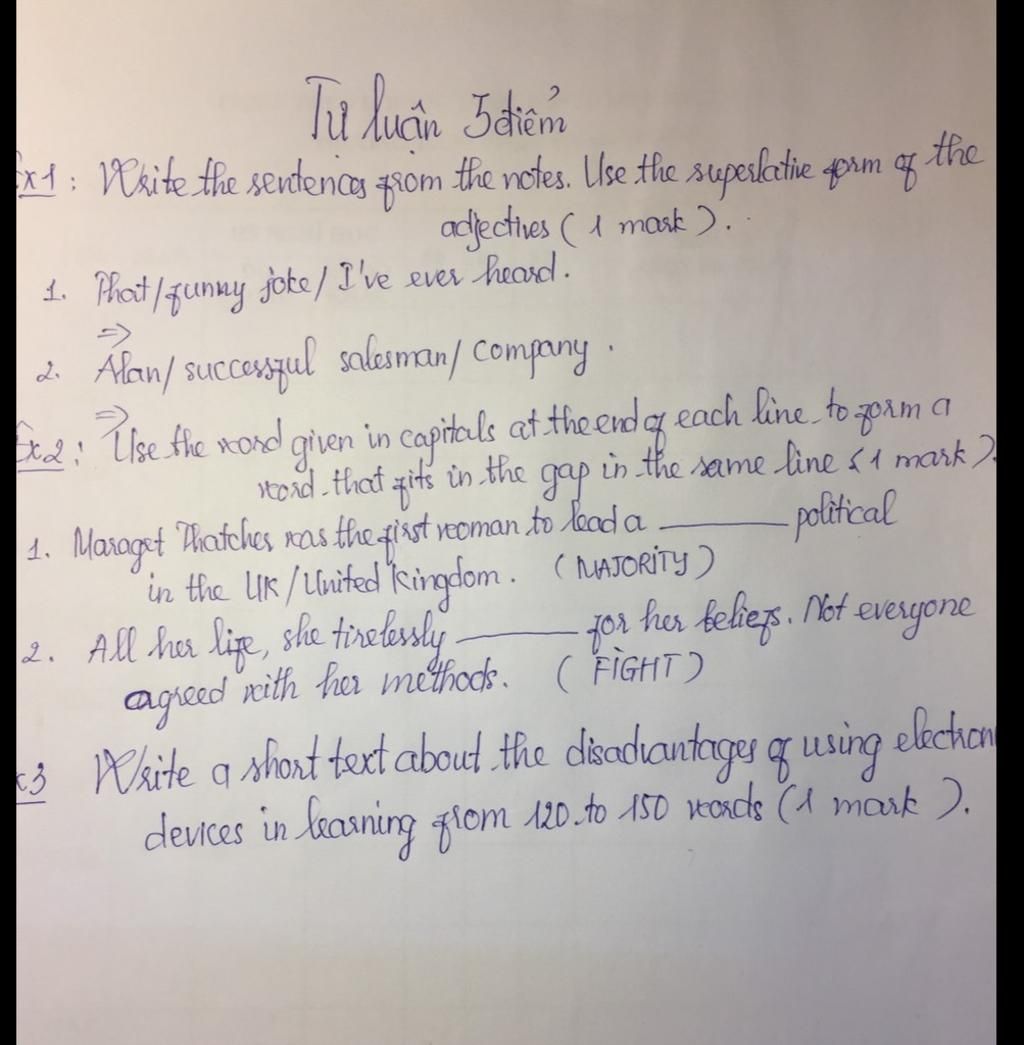 Tự luận 3 điểm
Ex1: Write the sentences from the notes. Use the superlative form of the
adjectives (1 mark).
1. That/funny joke/I've ever heard.
⇒
2. Alan/successful salesman/company.
⇒
Ex2: Use the word given in capitals at the end of each line to form a
word that fits in the gap in the same line (1 mark).
1. Maraget Thatcher was the first woman to lead a ______ political
in the UK/United Kingdom. (MAJORITY)
2. All her life, she tirelessly ______ for her beliefs. Not everyone
agreed with her methods. (FIGHT)
x3 Write a short text about the disadvantages of using electron
devices in learning from 120 to 150 words (1 mark).